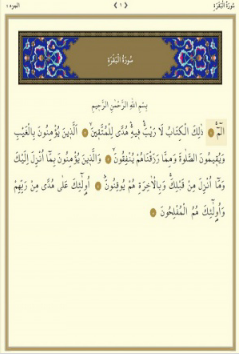 سُورَةُ الْبَقَرَةِ ‹ ١ › الجزء ١
سُورَةُ الْبَقَرَةِ
بِسْمِ اللّٰهِ الرَّحْمٰنِ الرَّحِيمِ
الٓمٓ ذٰلِكَ الْكِتَابُ لَا رَيْبَ فِيهِ هُدًى لِلْمُتَّقِينَ اَلَّذِينَ يُؤْمِنُونَ بِالْغَيْبِ
وَيُقِيمُونَ الصَّلٰوةَ وَمِمَّا رَزَقْنَاهُمْ يُنْفِقُونَ وَالَّذِينَ يُؤْمِنُونَ بِمَا اُنْزِلَ اِلَيْكَ
وَمَا اُنْزِلَ مِنْ قَبْلِكَ وَبِالْاٰخِرَةِ هُمْ يُوقِنُونَ اُولٰئِكَ عَلٰى هُدًى مِنْ رَبِّهِمْ
وَاُولٰئِكَ هُمُ الْمُفْلِحُونَ